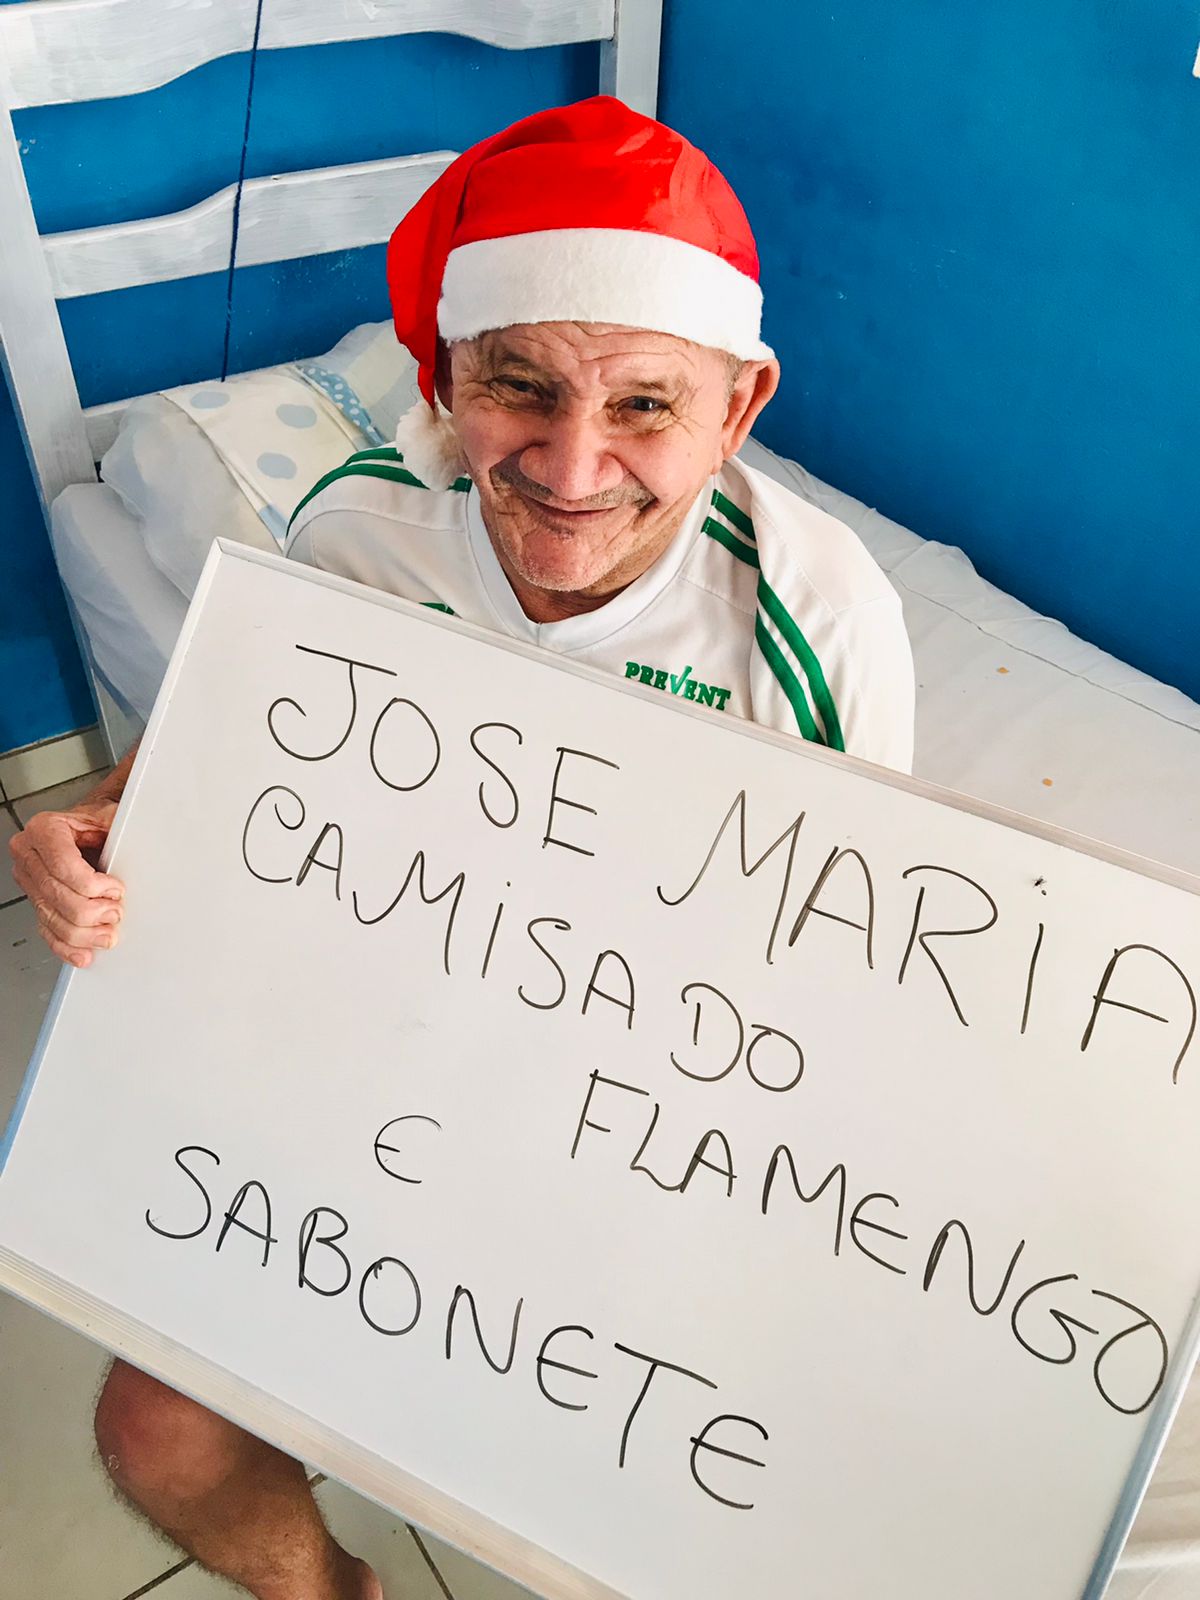 PREVENT
JOSE MARiA
CAMiSA DO
FLAMENGO
E
SABONETE